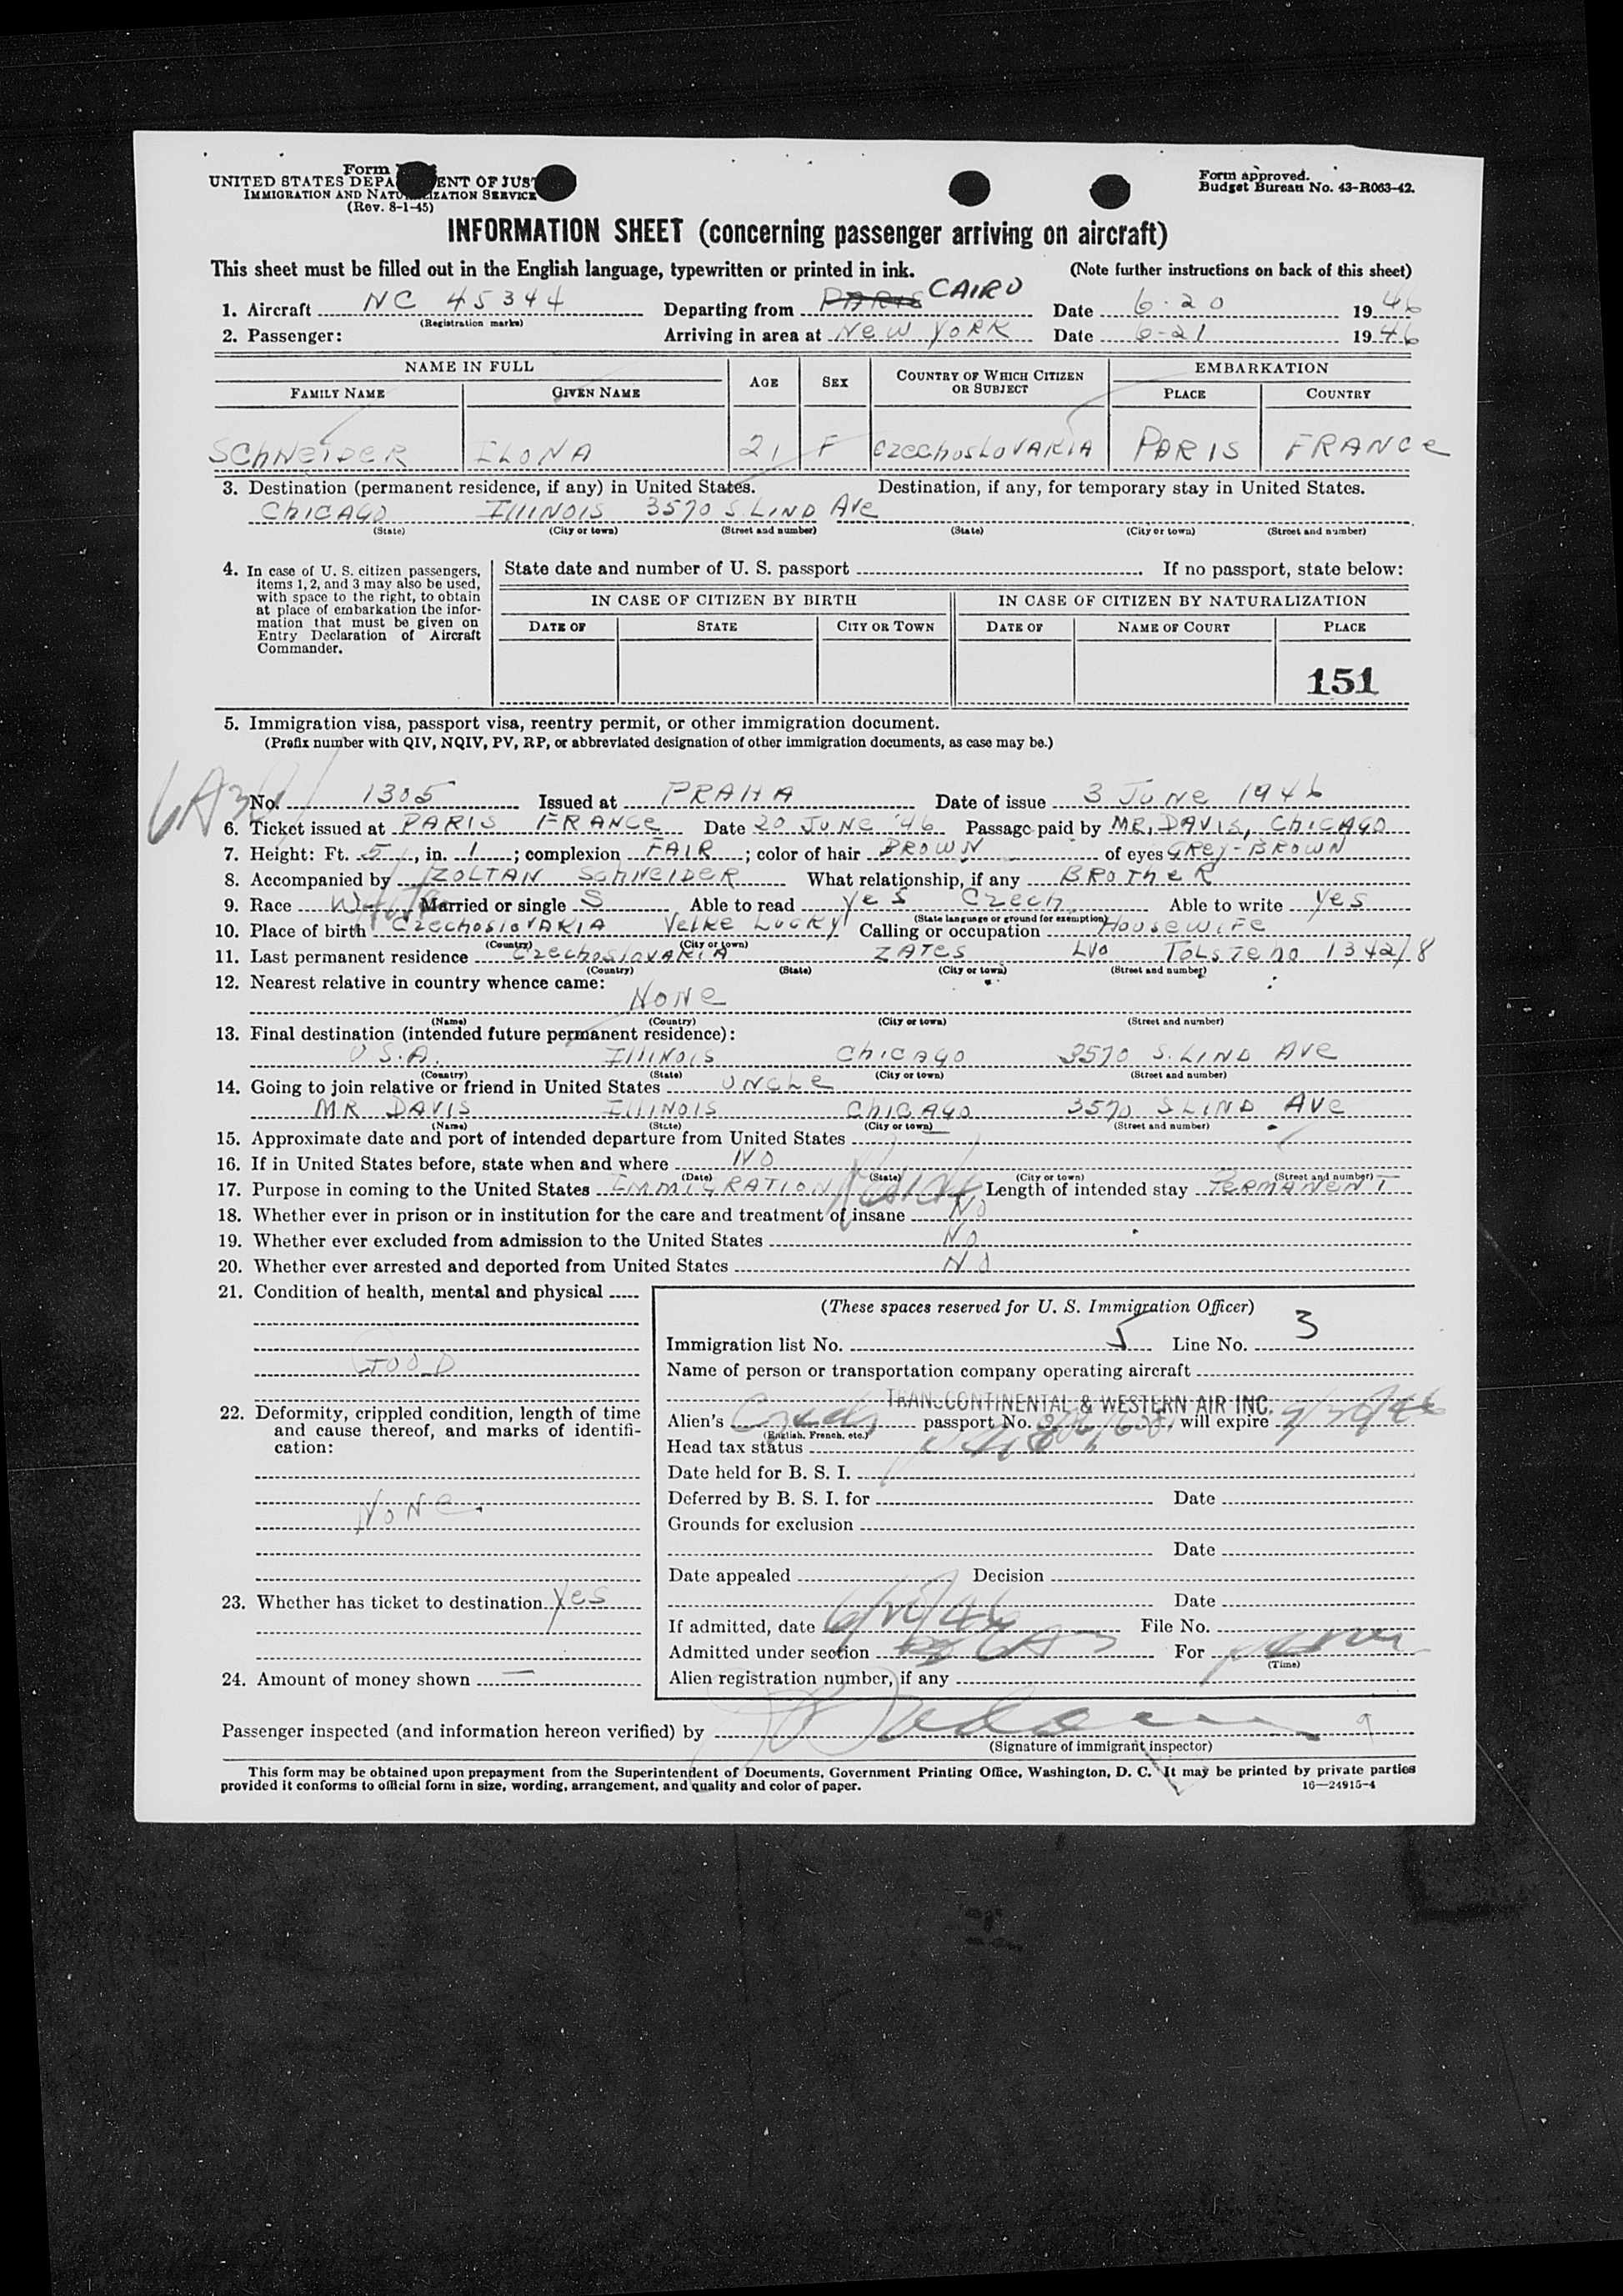 Form
UNITED STATES DEPA ENT OF JUS
IMMIGRATION AND NATU IZATION SERVICE
(Rev. 8-1-45)
Form approved.
Budget Bureau No. 43-R063-42.
INFORMATION SHEET (concerning passenger arriving on aircraft)
This sheet must be filled out in the English language, typewritten or printed in ink. (Note further instructions on back of this sheet)
1. Aircraft NC 45344 Departing from PARIS CAIRO Date 6-20 1946
(Registration marks)
2. Passenger: Arriving in area at New YORK Date 6-21 1946
NAME IN FULL AGE SEX COUNTRY OF WHICH CITIZEN OR SUBJECT EMBARKATION
FAMILY NAME GIVEN NAME PLACE COUNTRY
SCHNEIDER ILONA 21 F CzechosLOVAKIA PARIS FRANCE
3. Destination (permanent residence, if any) in United States. Destination, if any, for temporary stay in United States.
ChICAGO IllINOIS 3570 S. LIND AVe
(State) (City or town) (Street and number) (State) (City or town) (Street and number)
4. In case of U. S. citizen passengers, items 1, 2, and 3 may also be used, with space to the right, to obtain at place of embarkation the information that must be given on Entry Declaration of Aircraft Commander.
State date and number of U. S. passport If no passport, state below:
IN CASE OF CITIZEN BY BIRTH IN CASE OF CITIZEN BY NATURALIZATION
DATE OF STATE CITY OR TOWN DATE OF NAME OF COURT PLACE
151
5. Immigration visa, passport visa, reentry permit, or other immigration document.
(Prefix number with QIV, NQIV, PV, RP, or abbreviated designation of other immigration documents, as case may be.)
No. 1305 Issued at PRAHA Date of issue 3 JUNe 1946
6. Ticket issued at PARIS FRANCe Date 20 JUNe '46 Passage paid by MR. DAVIS, ChICAGO
7. Height: Ft. 5, in. 1; complexion FAIR; color of hair BROWN of eyes GRey-BROWN
8. Accompanied by ZOLTAN SchNEIDER What relationship, if any BROTheR
9. Race White Married or single S Able to read yes Czech Able to write yes
(State language or ground for exemption)
10. Place of birth CzechoslovAKIA Velke Lucky Calling or occupation HousewIFe
(Country) (City or town)
11. Last permanent residence CzechoslovAKIA ZATes LVO TOLSTeho 1342/8
(Country) (State) (City or town) (Street and number)
12. Nearest relative in country whence came:
NONe
(Name) (Country) (City or town) (Street and number)
13. Final destination (intended future permanent residence):
U.S.A. IllINOIS ChICAGO 3570 S. LIND AVe
(Country) (State) (City or town) (Street and number)
14. Going to join relative or friend in United States UNCLe
MR DAVIS IllINOIS ChICAGO 3570 S LIND AVe
(Name) (State) (City or town) (Street and number)
15. Approximate date and port of intended departure from United States
16. If in United States before, state when and where NO
(Date) (State) (City or town) (Street and number)
17. Purpose in coming to the United States IMMIGRATION Reside Length of intended stay PeRMANeNT
18. Whether ever in prison or in institution for the care and treatment of insane NO
19. Whether ever excluded from admission to the United States NO
20. Whether ever arrested and deported from United States NO
21. Condition of health, mental and physical
GOOD
22. Deformity, crippled condition, length of time and cause thereof, and marks of identification:
NONe.
23. Whether has ticket to destination yes
24. Amount of money shown —
(These spaces reserved for U. S. Immigration Officer)
Immigration list No. 5 Line No. 3
Name of person or transportation company operating aircraft
TRANSCONTINENTAL & WESTERN AIR INC.
Alien's Czech passport No. will expire
(English, French, etc.)
Head tax status
Date held for B. S. I.
Deferred by B. S. I. for Date
Grounds for exclusion
Date
Date appealed Decision
Date
If admitted, date 6/21/46 File No.
Admitted under section 6A3 For perm
(Time)
Alien registration number, if any
Passenger inspected (and information hereon verified) by
(Signature of immigrant inspector)
This form may be obtained upon prepayment from the Superintendent of Documents, Government Printing Office, Washington, D. C. It may be printed by private parties
provided it conforms to official form in size, wording, arrangement, and quality and color of paper. 16—24915-4